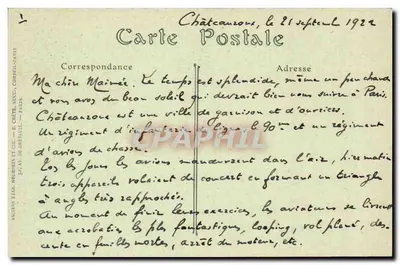 1
Châteauroux, le 21 septembre 1922
Carte Postale
Correspondance
Adresse
Ma chère Mainée. Le temps est splendide, même un peu chaud
et vous avez du beau soleil qui devrait bien vous suivre à Paris.
Châteauroux est une ville de garnison et d'ouvriers.
Un régiment d'infanterie de ligne le 90me et un régiment
d'avions de chasse.
Tous les jours les avions manœuvrent dans l'air, hier matin
trois appareils volaient de concert en formant un triangle
à angles très rapprochés.
Au moment de finir leurs exercices, les aviateurs se livrent
aux acrobaties les plus fantastiques, looping, vol plané, des-
cente en feuilles mortes, arrêt du moteur, etc.
PHIL